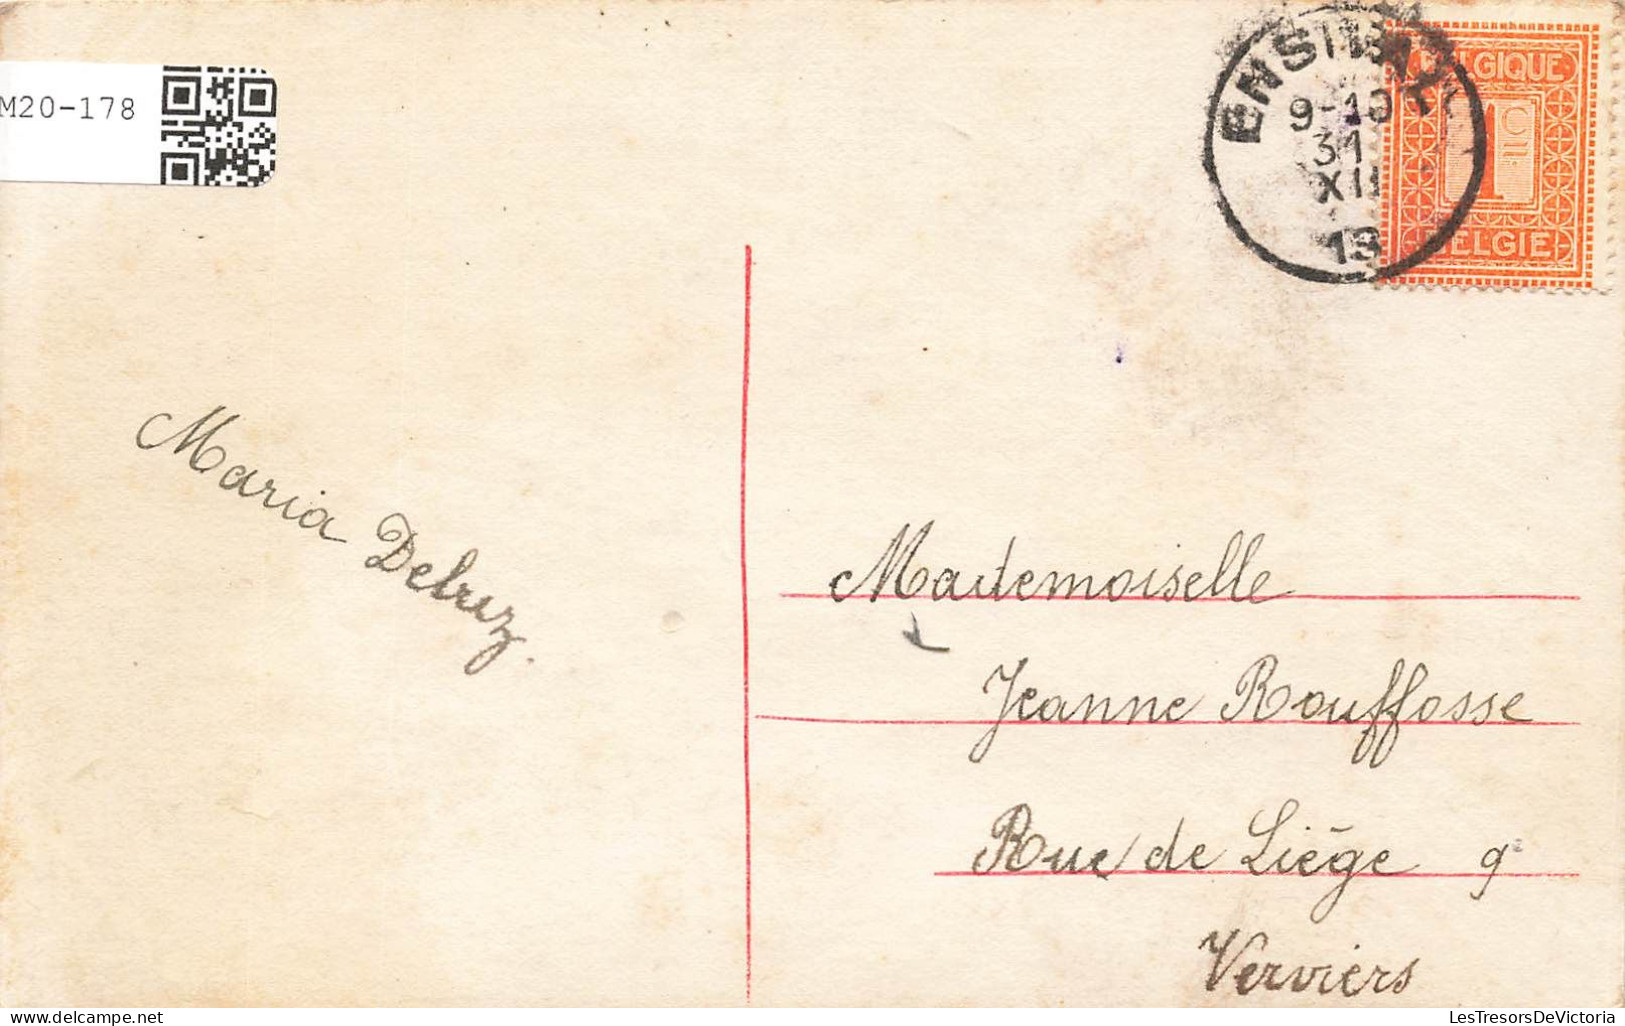 M20-178
ENSIVAL
9-10
31
XII
13
BELGIQUE
1
Cm.
BELGIE
Maria Delrez.
Mademoiselle
Jeanne Rouffosse
Rue de Liège 9
Verviers
LesTresorsDeVictoria
delcampe.net